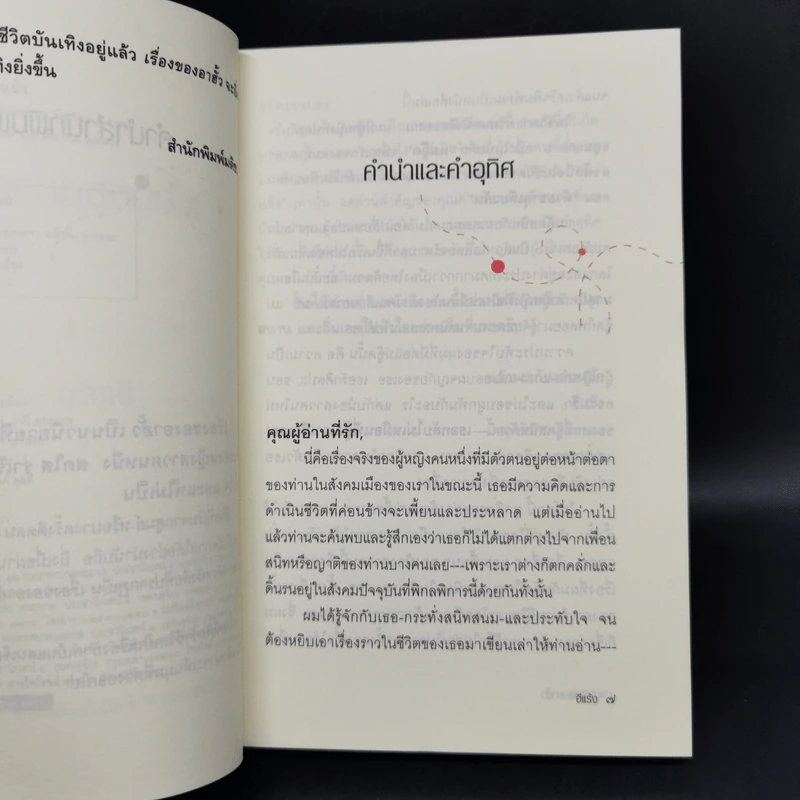 ชีวิตบันเทิงอยู่แล้ว เรื่องของอาฮั้ว จะ
ทิงยิ่งขึ้น
สำนักพิมพ์
คำนำและคำอุทิศ
คุณผู้อ่านที่รัก,
นี่คือเรื่องจริงของผู้หญิงคนหนึ่งที่มีตัวตนอยู่ต่อหน้าต่อตา
ของท่านในสังคมเมืองของเราในขณะนี้ เธอมีความคิดและการ
ดำเนินชีวิตที่ค่อนข้างจะเพี้ยนและประหลาด แต่เมื่ออ่านไป
แล้วท่านจะค้นพบและรู้สึกเองว่าเธอก็ไม่ได้แตกต่างไปจากเพื่อน
สนิทหรือญาติของท่านบางคนเลย---เพราะเราต่างก็ตกคลั่กและ
ดิ้นรนอยู่ในสังคมปัจจุบันที่พิกลพิการนี้ด้วยกันทั้งนั้น
ผมได้รู้จักกับเธอ-กระทั่งสนิทสนม-และประทับใจ จน
ต้องหยิบเอาเรื่องราวในชีวิตของเธอมาเขียนเล่าให้ท่านอ่าน---
อีแร้ง ๗